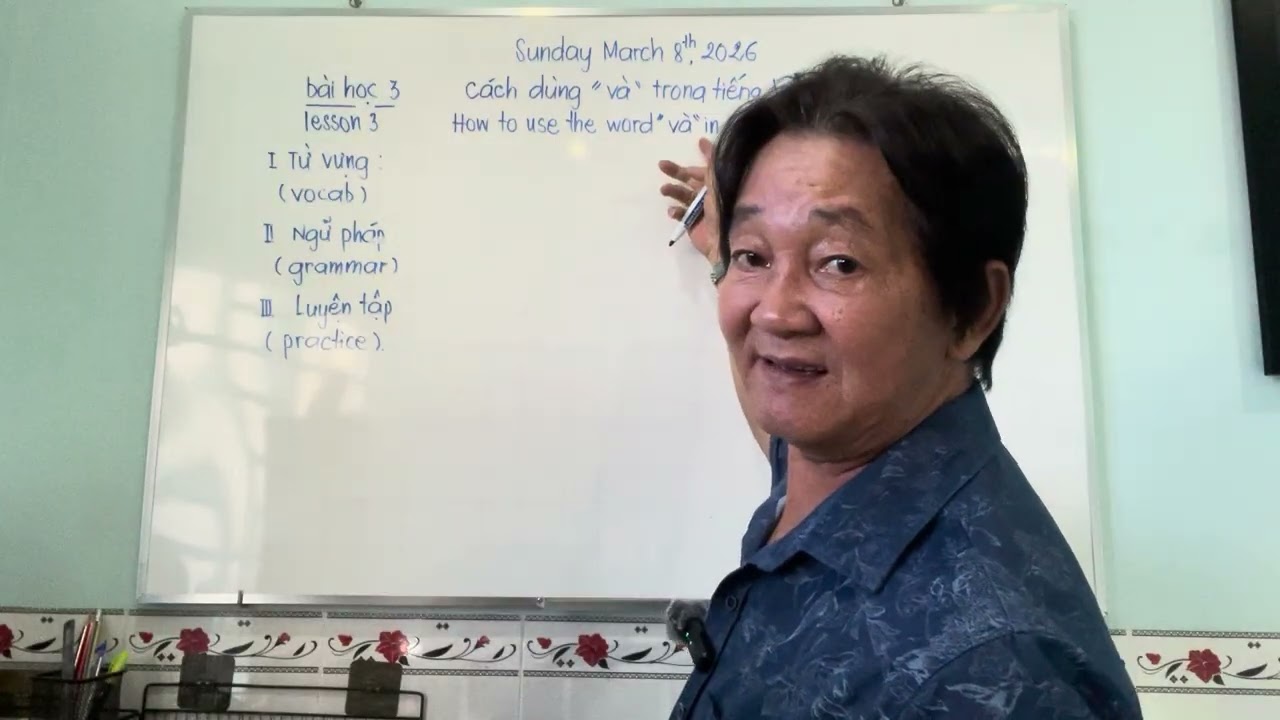 Sunday March 8th, 2026
bài học 3
cách dùng "và" trong tiếng
lesson 3
How to use the word "và" in
I Từ vựng :
(vocab)
II Ngữ pháp
(grammar)
III Luyện tập
(practice).